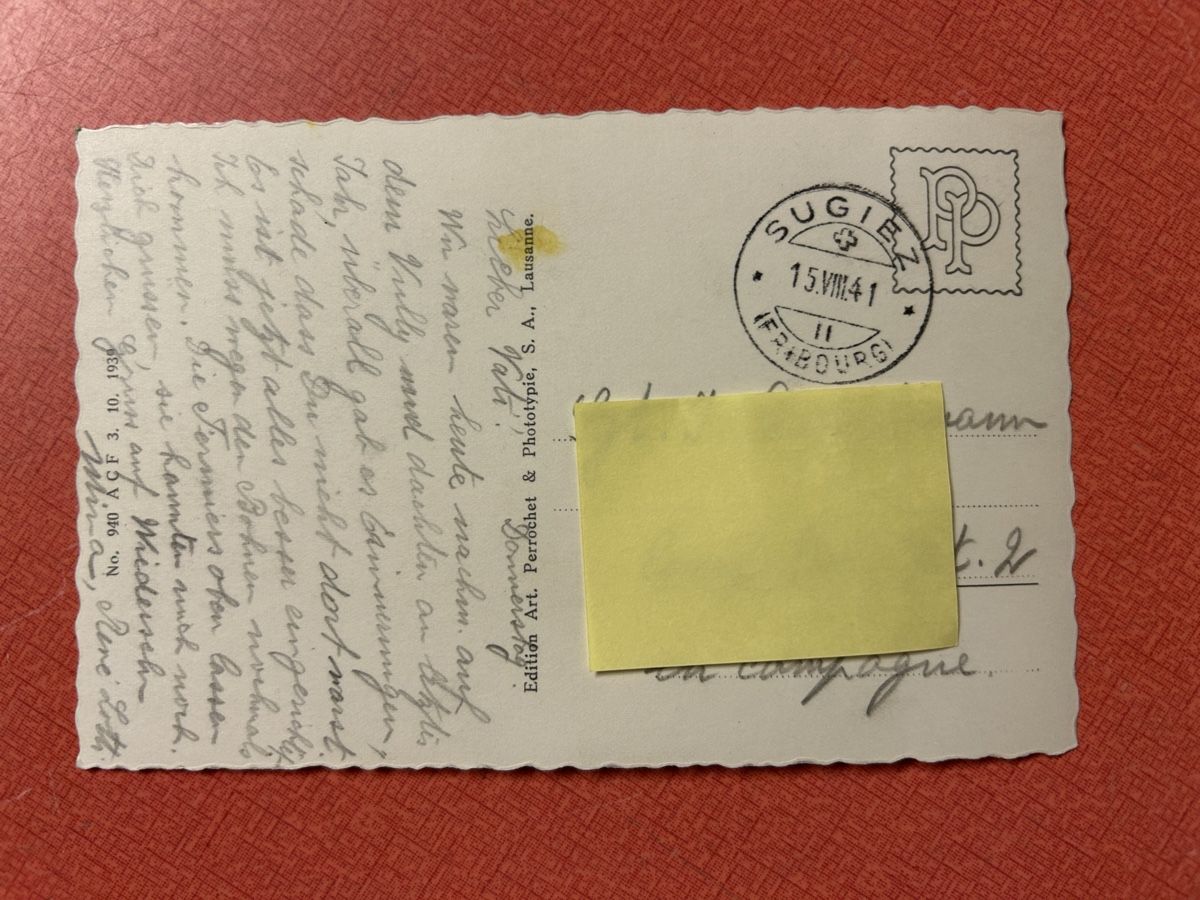 Donnerstag.
Lieber Vati!
Wir waren heute nachm. auf
dem Vully und dachten an letztes
Jahr, überall gab es Erinnerungen,
schade dass Du nicht dort warst.
Es ist jetzt alles besser eingerichtet
Ich muss wegen den Bohnen nochmals
kommen. Die lassen
Dich grüssen, sie kannten mich noch.
Herzlichen Gruss auf Wiedersehn
Mina, René Lotti.
No. 940 A C F 3. 10. 1939
Edition Art. Perrochet & Phototypie, S. A., Lausanne.
PP
SUGIEZ
15.VIII.41
11
(FRIBOURG)
mann
t. 2
En campagne.